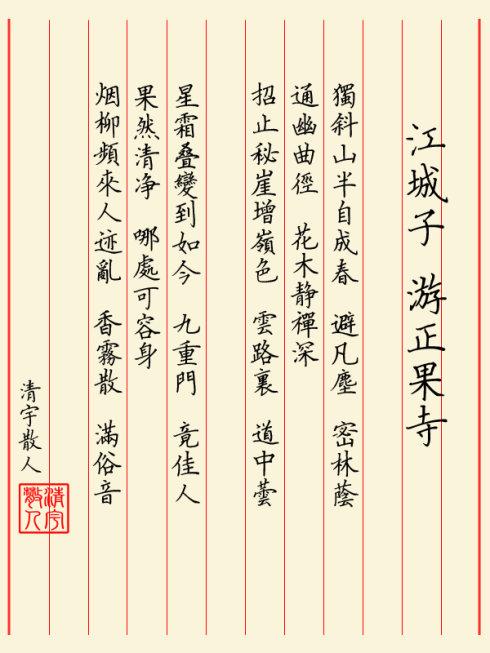 江城子 游正果寺
獨斜山半自成春 避凡塵 密林蔭
通幽曲徑 花木静禪深
招止秘崖增嶺色 雲路裏 道中蕓
星霜叠變到如今 九重門 竟佳人
果然清净 哪處可容身
烟柳頻來人迹亂 香霧散 滿俗音
清宇散人
清宇
散人